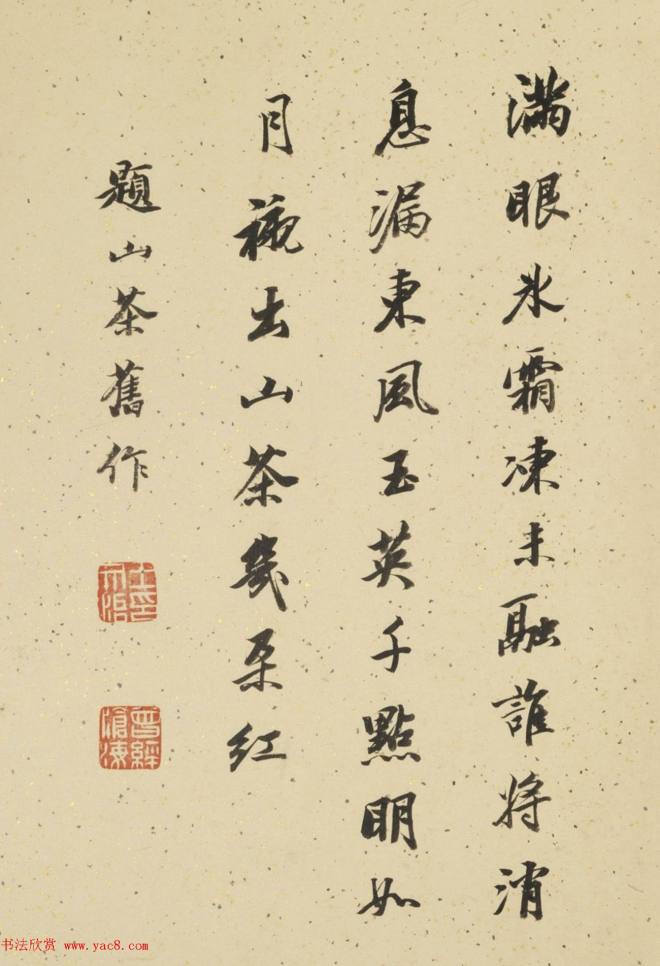 满眼氷霜凍未融誰将消
息漏東風玉英千點明如
月襯出山茶幾朵红
題山茶舊作
曾經滄海
书法欣赏 www.yac8.com